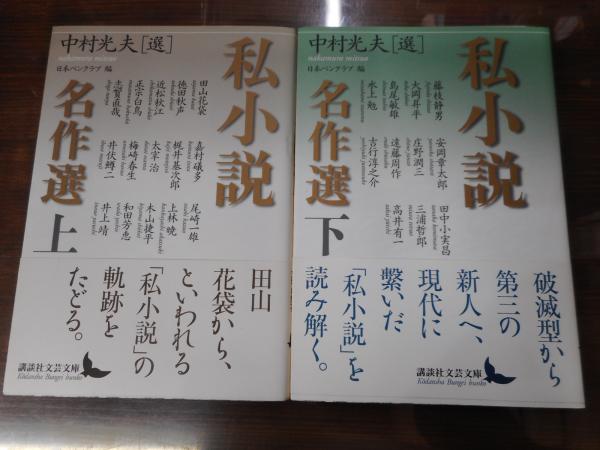 中村光夫[選]
nakamura mitsuo
日本ペンクラブ 編
私小説
名作選 上
田山花袋
徳田秋声
近松秋江
正宗白鳥
志賀直哉
嘉村礒多
梶井基次郎
太宰治
梅崎春生
井伏鱒二
尾崎一雄
上林暁
木山捷平
和田芳恵
井上靖
田山
花袋から、
といわれる
「私小説」の
軌跡を
たどる。
講談社文芸文庫
Kōdansha Bungei bunko
中村光夫[選]
nakamura mitsuo
日本ペンクラブ 編
私小説
名作選 下
藤枝静男
大岡昇平
島尾敏雄
水上勉
安岡章太郎
庄野潤三
遠藤周作
吉行淳之介
田中小実昌
三浦哲郎
高井有一
破滅型から
第三の
新人へ、
現代に
繋いだ
「私小説」を
読み解く。
講談社文芸文庫
Kōdansha Bungei bunko